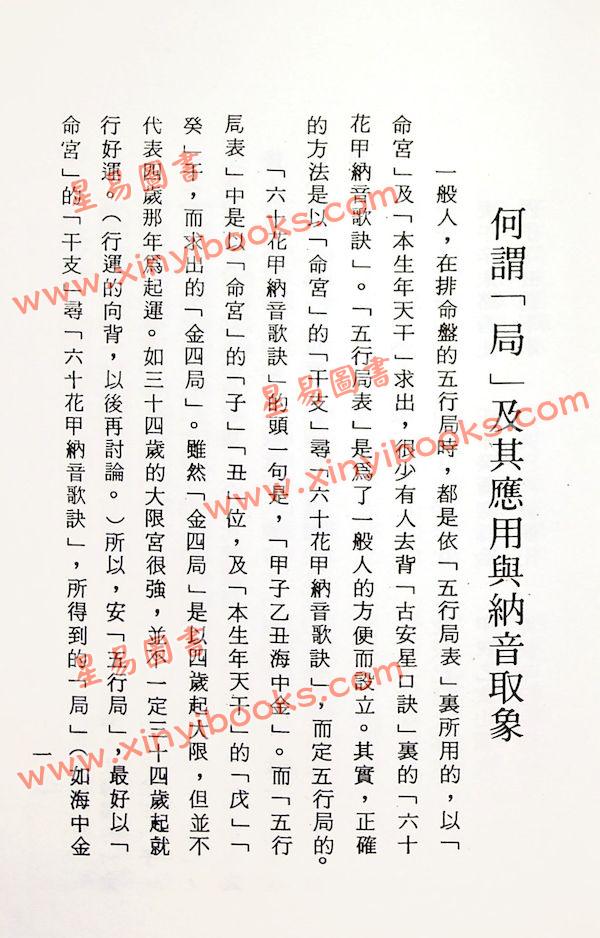 何謂「局」及其應用與納音取象
一般人，在排命盤的五行局時，都是依「五行局表」裏所用的，以「
命宮」及「本生年天干」求出，很少有人去背「古安星口訣」裏的「六十
花甲納音歌訣」。「五行局表」是爲了一般人的方便而設立。其實，正確
的方法是以「命宮」的「干支」尋「六十花甲納音歌訣」，而定五行局的。
「六十花甲納音歌訣」的頭一句是，「甲子乙丑海中金」。而「五行
局表」中是以「命宮」的「子」「丑」位，及「本生年天干」的「戊」「
癸」干，而求出的「金四局」。雖然「金四局」是以四歲起大限，但並不
代表四歲那年爲起運。如三十四歲的大限宮很強，並不一定三十四歲起就
行好運。（行運的向背，以後再討論。）所以，安「五行局」，最好以「
命宮」的「干支」尋「六十花甲納音歌訣」，所得到的「局」（如海中金
一
星易圖書
www.xinyibooks.com
星易圖書
www.xinyibooks.com
星易圖書
www.xinyibooks.com